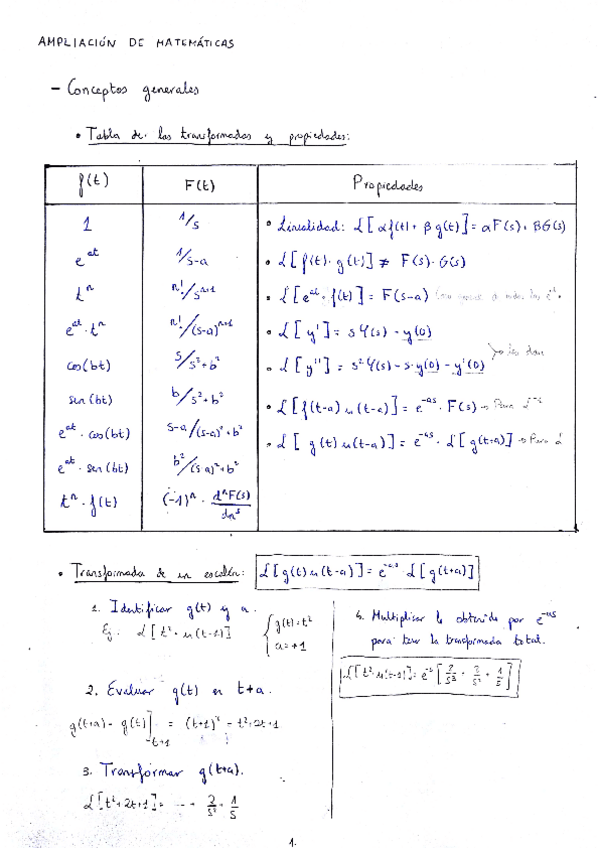 AMPLIACIÓN DE MATEMÁTICAS
- Conceptos generales
• Tabla de las transformadas y propiedades:
f(t) F(t) Propiedades
1 1/s • Linealidad: L[αf(t) + βg(t)] = αF(s) + βG(s)
e^at 1/s-a • L[f(t)·g(t)] ≠ F(s)·G(s)
t^n n!/s^n+1 • L[e^at·f(t)] = F(s-a)
e^at·t^n n!/(s-a)^n+1 • L[y'] = sY(s) - y(0)
cos(bt) s/s²+b² • L[y''] = s²Y(s) - s·y(0) - y'(0) > los dan
sen(bt) b/s²+b² • L[f(t-a)u(t-a)] = e^-as · F(s) → Para L^-1
e^at·cos(bt) s-a/(s-a)²+b² • L[g(t)u(t-a)] = e^-as · L[g(t+a)] → Para L
e^at·sen(bt) b²/(s-a)²+b²
t^n·f(t) (-1)^n · d^nF(s)/dn^s
• Transformada de un escalón: L[g(t)u(t-a)] = e^-as · L[g(t+a)]
1. Identificar g(t) y a.
Ej: L[t²·u(t-1)] { g(t)=t²
a=+1
2. Evaluar g(t) en t+a.
g(t+a) = g(t)]t+1 = (t+1)² = t²+2t+1
3. Transformar g(t+a).
L[t²+2t+1] = 2/s² + 1/s
4. Multiplicar lo obtenido por e^-as
para tener la transformada total.
L[t²·u(t-1)] = e^-s [2/s³ + 2/s² + 1/s]
1.